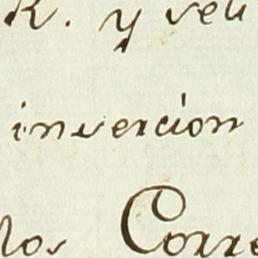 R. y vei
invercion
los Corre